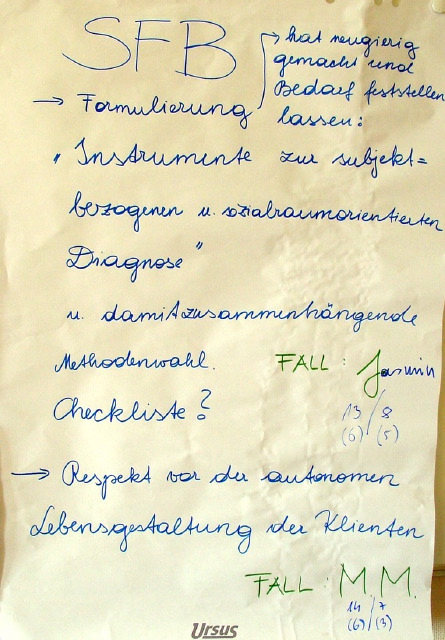 SFB
hat neugierig
gemacht und
Bedarf feststellen
lassen:
→ Formulierung
„Instrumente zur subjekt=
bezogenen u. sozialraumorientierten
Diagnose"
u. damit zusammenhängende
Methodenwahl.
FALL : Jasmin
Checkliste?
13 / 8
(6) (5)
→ Respekt vor der autonomen
Lebensgestaltung der Klienten
FALL : M. M.
14 / 7
(6) (3)
Ursus